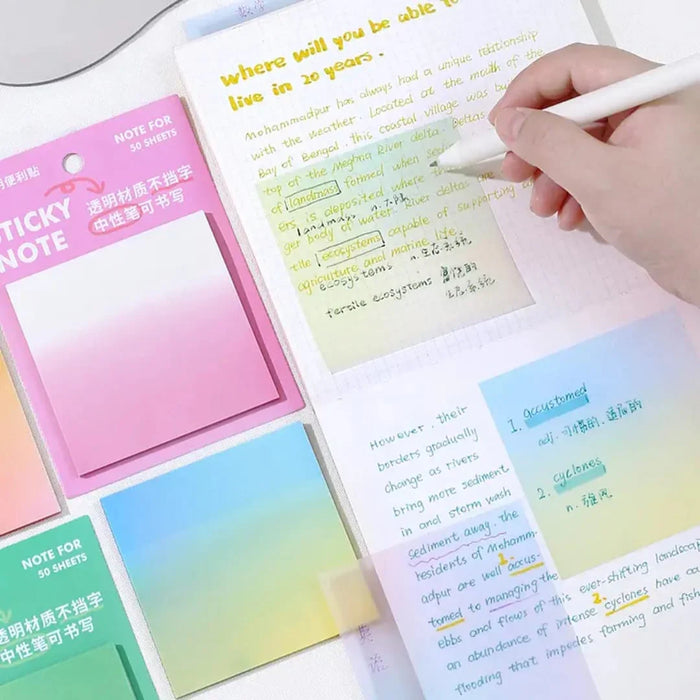 where will you be able to
live in 20 years.
Mohammadpur has always had a unique relationship
with the weather. Located at the mouth of the
Bay of Bengal, this coastal village was bu
top of the Meghna River delta. Deltas
of landmass formed when sed
ers is deposited where th
landmass n.
ger body of water. River deltas are
tile ecosystems capable of supporting a
agriculture and marine life.
ecosystems n. 生态系统
fertile ecosystems 肥沃的
生态系统
However, their
borders gradually
change as rivers
bring more sediment
in and storm wash
sediment away. The
residents of Mohamm-
1.
adpur are well accus-
tomed to managing the
ebbs and flows of this ever-shifting landscap
2.
an abundance of intense cyclones have cau
flooding that impedes farming and fish
1. accustomed
adj. 习惯的, 适应的
2. cyclones
n.
便利贴
STICKY
NOTE
NOTE FOR
50 SHEETS
透明材质不挡字
中性笔可书写
NOTE FOR
50 SHEETS
透明材质不挡字
中性笔可书写